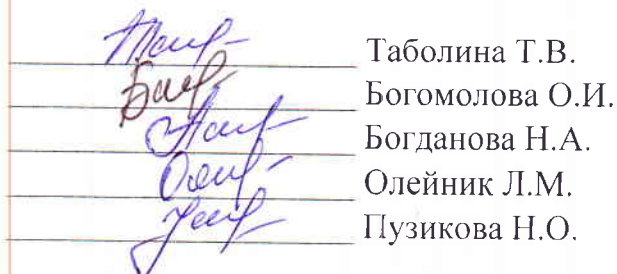 Таболина Т.В.
Богомолова О.И.
Богданова Н.А.
Олейник Л.М.
Пузикова Н.О.